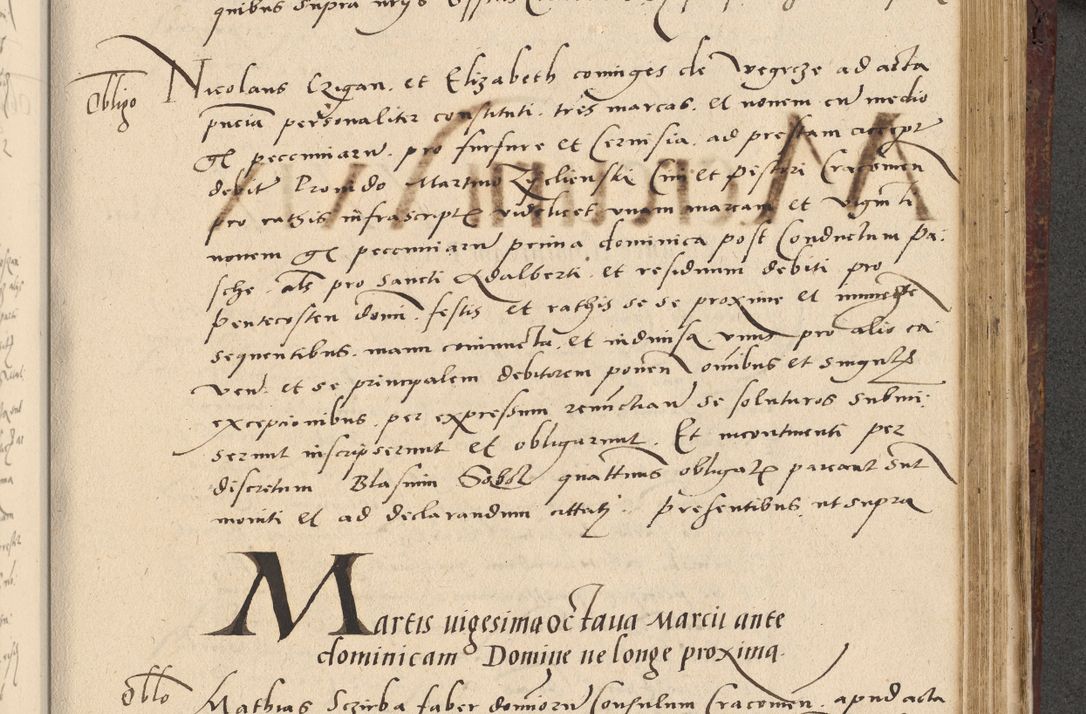 quibus supra
Obligo
Nicolaus Czigan et Elizabeth coniuges de Wegrcze ad acta
pncia personaliter constituti tres marcas et novem cu medio
gr pecuniaru pro furfure et Cervisia ad prestam accept
debit Provido Martino Civi et Pistori Cracovien
pro rathis infrascript videlicet unam marcam et viginti
novem gr pecuniaru prima dominica post Conductum Pa-
sche als pro Sancti Adalberti et residuum debiti pro
Pentecosten domi festis et rathis se se proxime et immediate
sequentibus manu coniuncta et indivisa unus pro alio ca-
ven et se principalem debitorem ponen omibus et singulis
exceptionibus per expressum renunctian se soluturos submi-
serunt inscripserunt et obligarunt Et incontinenti per
discretum Blasium Sobol quattnus obligat pareant sunt
moniti et ad declarandum cittati Presentibus ut supra
Martis vigesima octava Marcii ante
dominicam Domine ne longe proxima
Obllo
Mathias Sczirba faber dominoru Consulum Cracovien apud acta